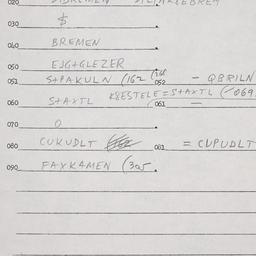 020
030 $
040 BREMEN
050 EJG+GLEZER
051 S+PAKULN (162 052 - QBRILN
KBESTELE = S+AXTL (069
060 S+AXTL 061 —
070 O
080 CUKUDLT 081 = CUPUDLT
090 FAXKAMEN (305